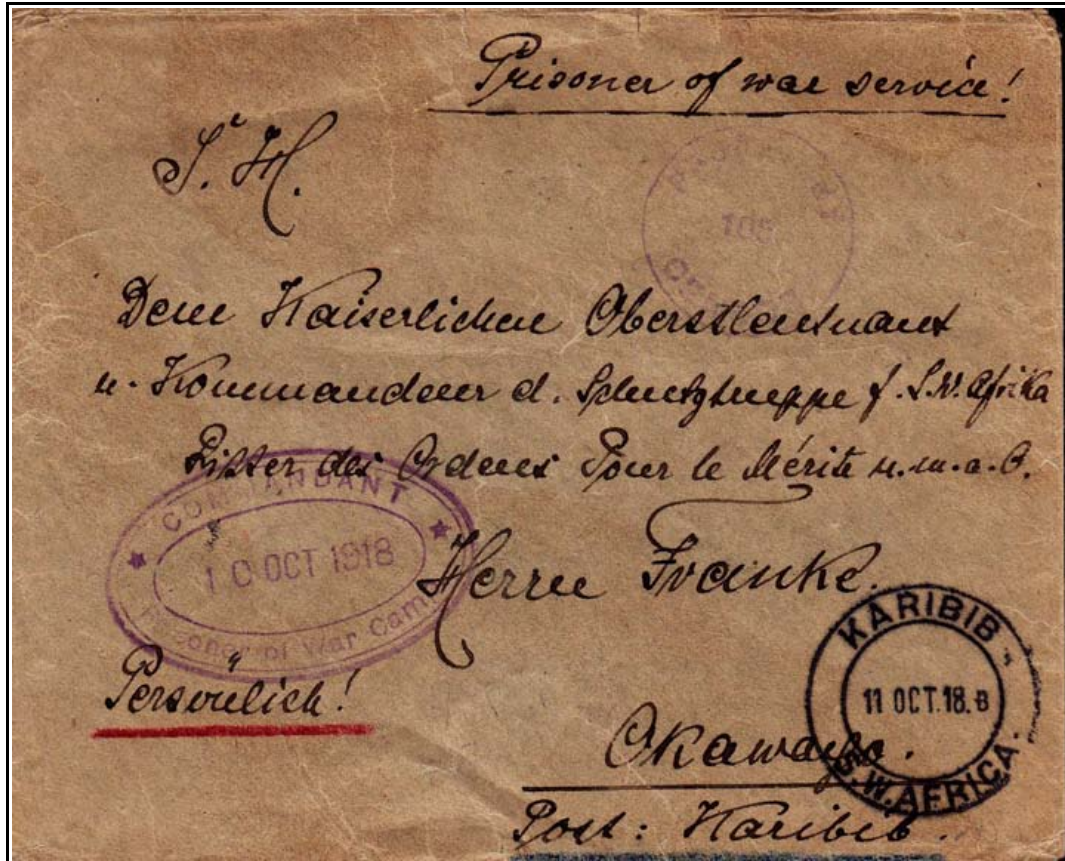 Prisoner of war service!
S. H.
105
Dem Kaiserlichen Oberstleutnant
u. Kommandeur d. Schutztruppe f. S.W. Afrika
Ritter des Ordens Pour le Mérite u.m.a.O.
COMMANDANT
10 OCT 1918
Prisoner of War Camp
Herrn Franke.
KARIBIB
11 OCT.18.B
S.W. AFRICA.
Persönlich!
Okawayo.
Post: Karibib.